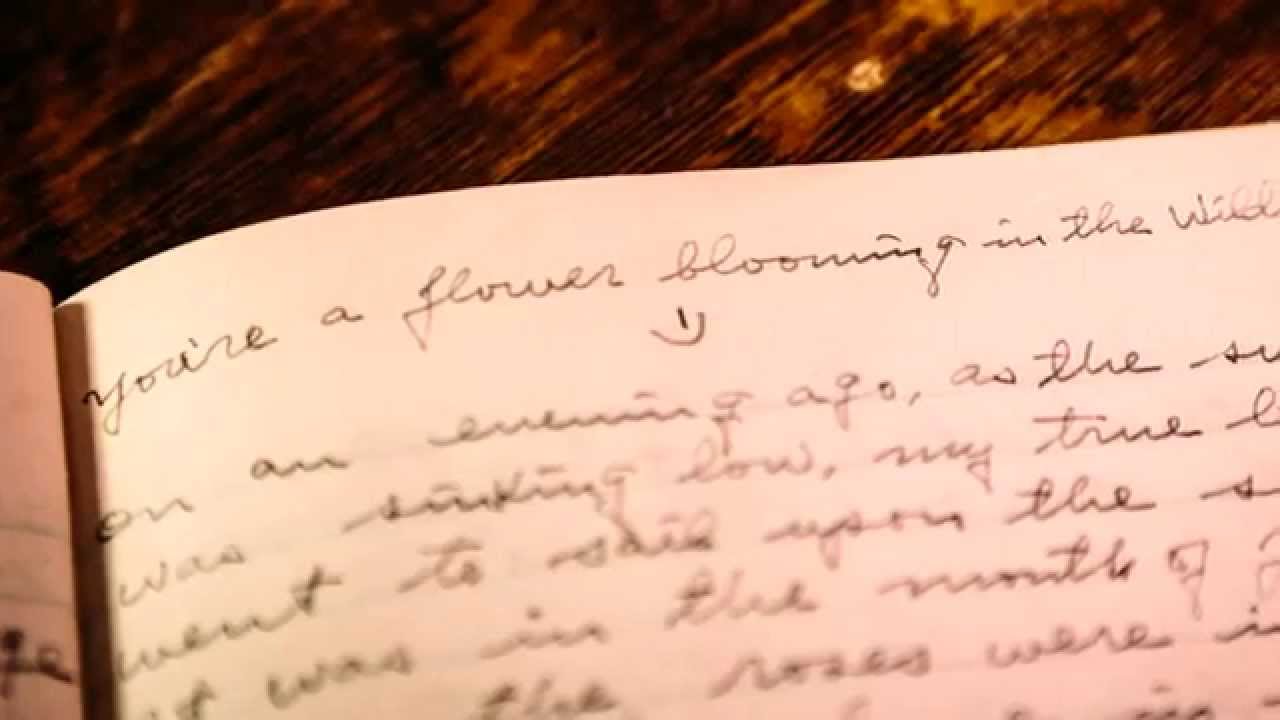 you're a flower blooming in the Wild
on an evening ago, as the su
was sinking low, my true l
went to sail upon the s
it was in the month of J
the roses were i
in
ge